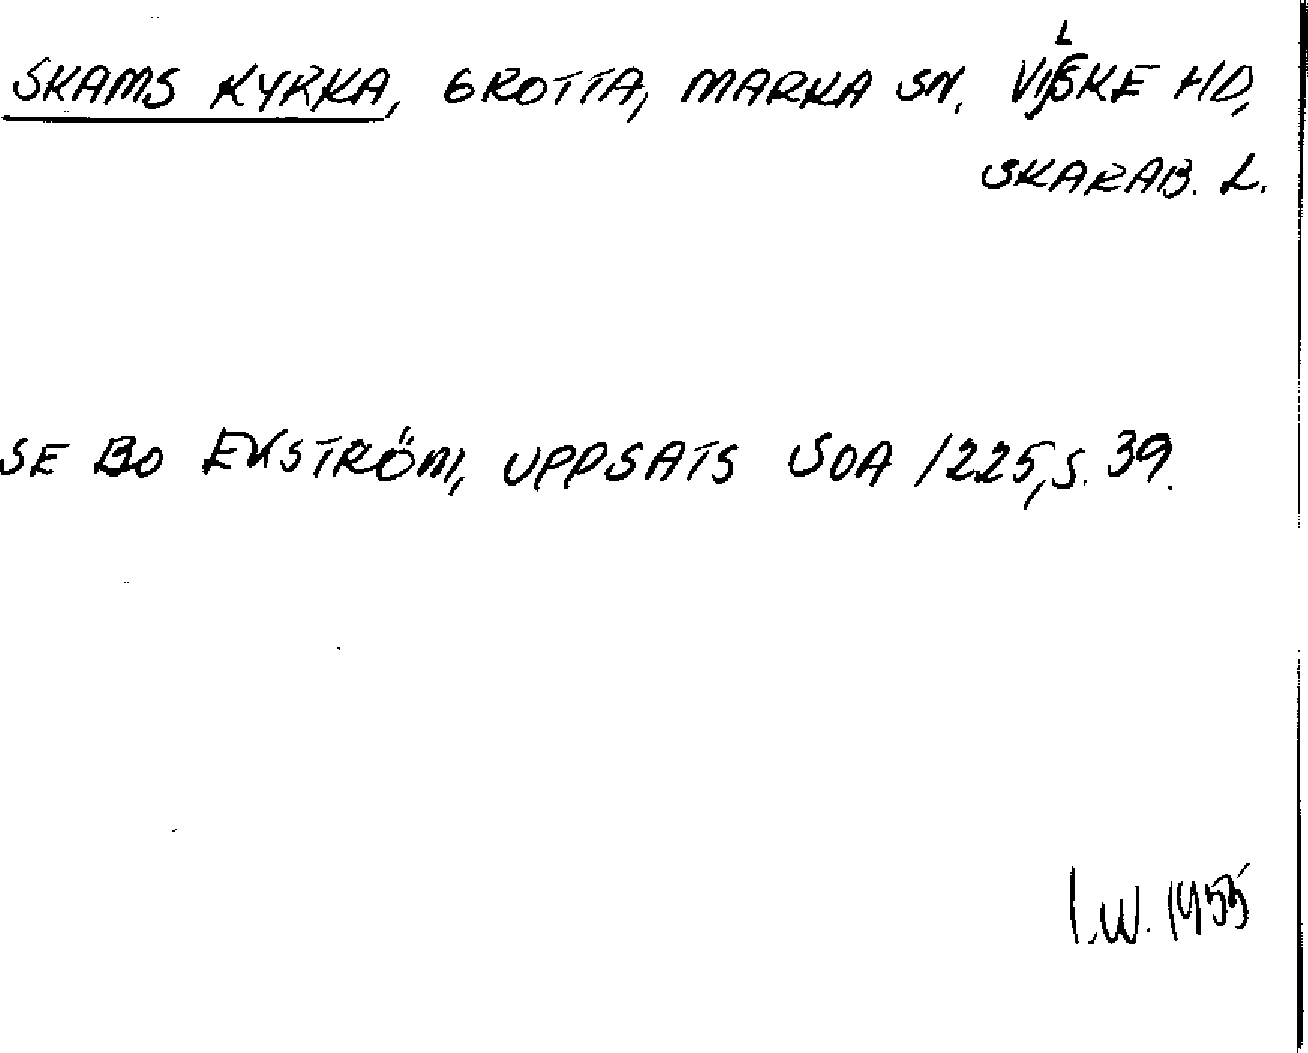 SKAMS KYRKA, GROTTA, MARKA SN. VILSKE HD,
SKARAB. L.
SE BO EKSTRÖM, UPPSATS SOA 1225, S. 39.
I.W. 1955